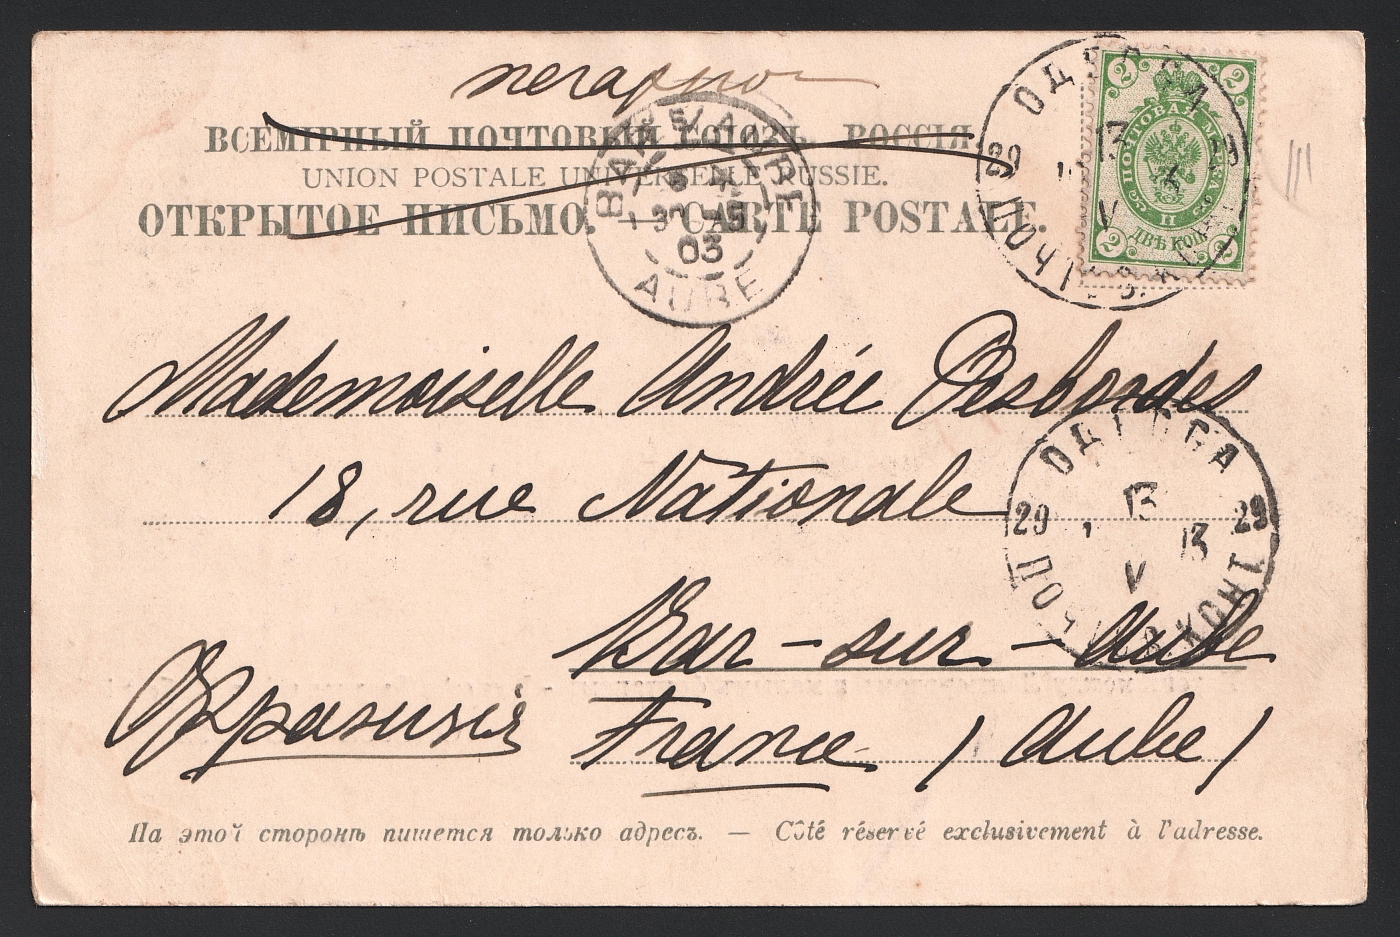 печатное
ВСЕМІРНЫЙ ПОЧТОВЫЙ СОЮЗЪ РОССІЯ.
UNION POSTALE UNIVERSELLE RUSSIE.
ОТКРЫТОЕ ПИСЬМО. — CARTE POSTALE.
BAR-S/AUBE
03
AUBE
ОДЕССА
2 2
ПОЧТОВАЯ МАРКА
ДВѢ КОП.
2 2
13
V
Mademoiselle Andrée Desbordes
18, rue Nationale
ОДЕССА
29 13 29
13
V
Bar-sur-Aube
Франція
France (Aube)
На этой сторонѣ пишется только адресъ. — Côté réservé exclusivement à l'adresse.